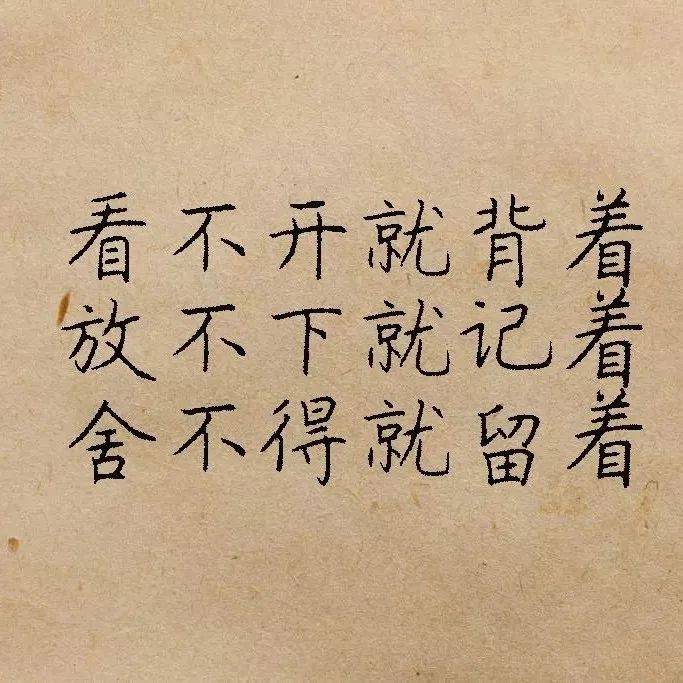 看不开就背着
放不下就记着
舍不得就留着